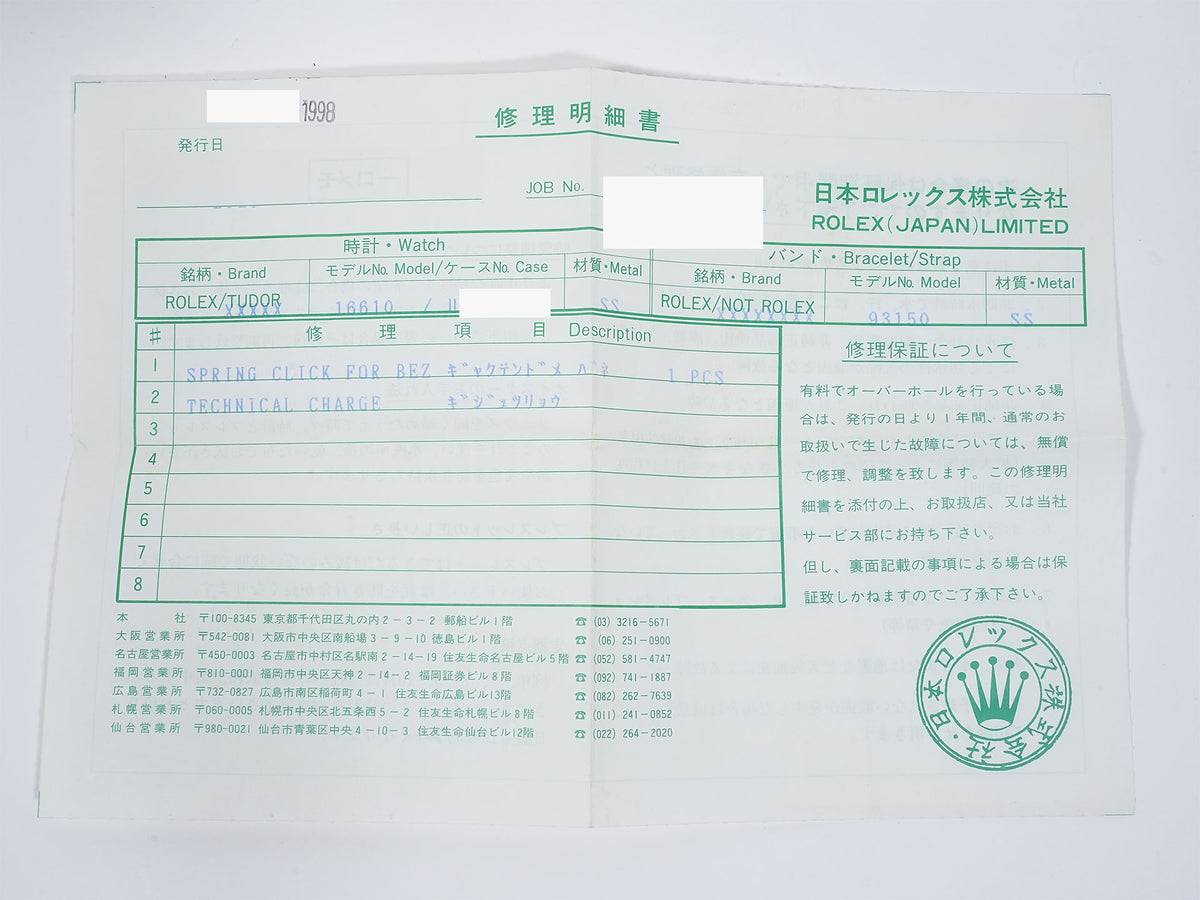 1998
修理明細書
発行日
JOB No.
日本ロレックス株式会社
ROLEX(JAPAN)LIMITED
時計・Watch
バンド・Bracelet/Strap
銘柄・Brand
モデルNo. Model/ケースNo. Case
材質・Metal
銘柄・Brand
モデルNo. Model
材質・Metal
ROLEX/TUDOR
XXXXX
16610 /
SS
ROLEX/NOT ROLEX
XXXXXXXX
93150
SS
# 修理項目 Description
1 SPRING CLICK FOR BEZ ギャクテンドメ バネ 1 PCS
2 TECHNICAL CHARGE ギジュツリョウ
3
4
5
6
7
8
修理保証について
有料でオーバーホールを行っている場
合は、発行の日より1年間、通常のお
取扱いで生じた故障については、無償
で修理、調整を致します。この修理明
細書を添付の上、お取扱店、又は当社
サービス部にお持ち下さい。
但し、裏面記載の事項による場合は保
証致しかねますのでご了承下さい。
本社 〒100-8345 東京都千代田区丸の内2-3-2 郵船ビル1階 ☎(03)3216-5671
大阪営業所 〒542-0081 大阪市中央区南船場3-9-10 徳島ビル1階 ☎(06)251-0900
名古屋営業所 〒450-0003 名古屋市中村区名駅南2-14-19 住友生命名古屋ビル5階 ☎(052)581-4747
福岡営業所 〒810-0001 福岡市中央区天神2-14-2 福岡証券ビル8階 ☎(092)741-1887
広島営業所 〒732-0827 広島市南区稲荷町4-1 住友生命広島ビル13階 ☎(082)262-7639
札幌営業所 〒060-0005 札幌市中央区北五条西5-2 住友生命札幌ビル8階 ☎(011)241-0852
仙台営業所 〒980-0021 仙台市青葉区中央4-10-3 住友生命仙台ビル12階 ☎(022)264-2020
日本ロレックス株式会社